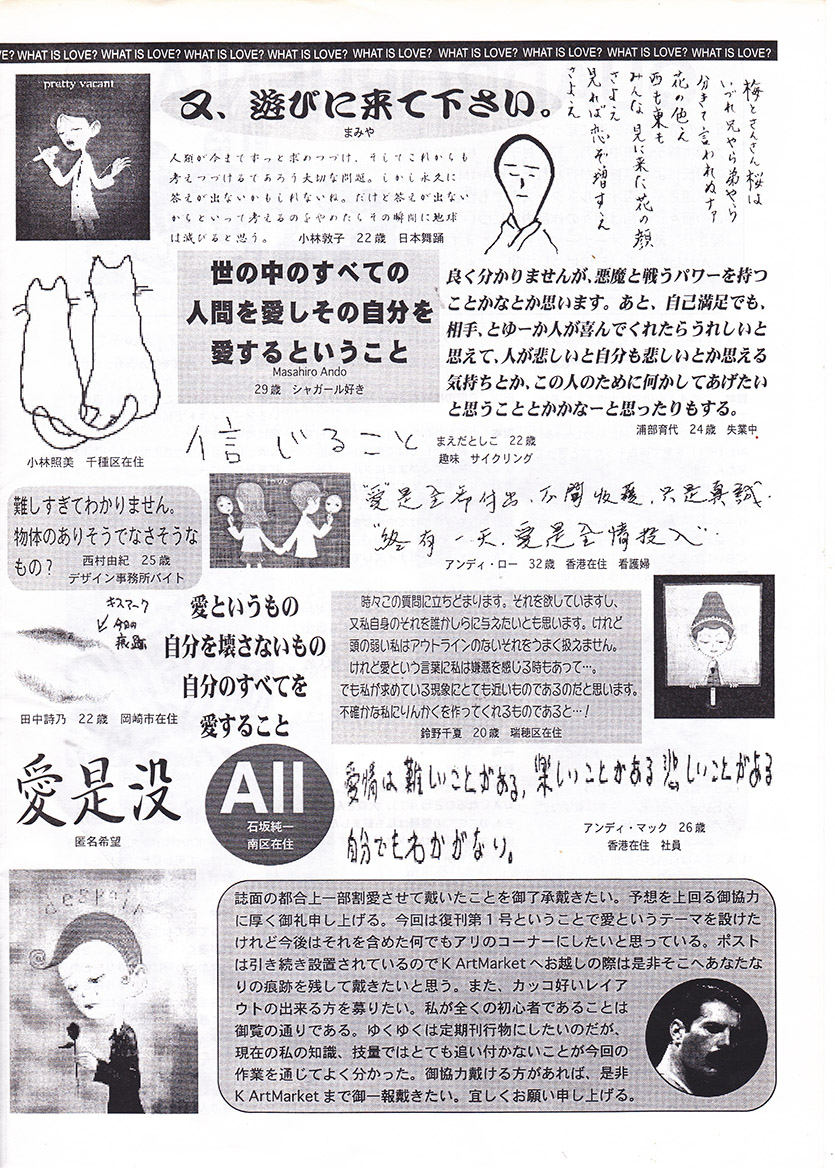 E? WHAT IS LOVE? WHAT IS LOVE? WHAT IS LOVE? WHAT IS LOVE? WHAT IS LOVE? WHAT IS LOVE? WHAT IS LOVE? WHAT IS LOVE? WHAT IS LOVE?
pretty vacant
又、遊びに来て下さい。
まみや
梅とさんさん桜は
いづれ兄やら弟やら
分きて言われぬナァ
花の色え
西も東も
みんな見に来た花の顔
さよえ
見れば恋ぞ増すえ
さよえ
人類が今までずっと求めつづけ、そしてこれからも
考えつづけるであろう大切な問題。しかし永久に
答えが出ないかもしれないね。だけど答えが出ない
からといって考えるのをやめたらその瞬間に地球
は滅びると思う。 小林敦子 22歳 日本舞踊
世の中のすべての
人間を愛しその自分を
愛するということ
Masahiro Ando
29歳 シャガール好き
良く分かりませんが、悪魔と戦うパワーを持つ
ことかなとか思います。あと、自己満足でも、
相手、とゆーか人が喜んでくれたらうれしいと
思えて、人が悲しいと自分も悲しいとか思える
気持ちとか、この人のために何かしてあげたい
と思うこととかかなーと思ったりもする。
浦部育代 24歳 失業中
小林照美 千種区在住
信じること
まえだとしこ 22歳
趣味 サイクリング
難しすぎてわかりません。
物体のありそうでなさそうな
もの?
西村由紀 25歳
デザイン事務所バイト
"愛是全部付出,不問收獲,只是真誠.
"終有一天,愛是全情投入".
アンディ・ロー 32歳 香港在住 看護婦
キスマーク
今日の
痕跡
田中詩乃 22歳 岡崎市在住
愛というもの
自分を壊さないもの
自分のすべてを
愛すること
時々この質問に立ちどまります。それを欲していますし、
又私自身のそれを誰かしらに与えたいとも思います。けれど
頭の弱い私はアウトラインのないそれをうまく扱えません。
けれど愛という言葉に私は嫌悪を感じる時もあって…。
でも私が求めている現象にとても近いものであるのだと思います。
不確かな私にりんかくを作ってくれるものであると…!
鈴野千夏 20歳 瑞穂区在住
愛是没
匿名希望
All
石坂純一
南区在住
愛情は難しいことがある,楽しいことがある悲しいことがある
自分でもわかがなり。
アンディ・マック 26歳
香港在住 社員
誌面の都合上一部割愛させて戴いたことを御了承戴きたい。予想を上回る御協力
に厚く御礼申し上げる。今回は復刊第1号ということで愛というテーマを設けた
けれど今後はそれを含めた何でもアリのコーナーにしたいと思っている。ポスト
は引き続き設置されているのでK ArtMarketへお越しの際は是非そこへあなたな
りの痕跡を残して戴きたいと思う。また、カッコ好いレイア
ウトの出来る方を募りたい。私が全くの初心者であることは
御覧の通りである。ゆくゆくは定期刊行物にしたいのだが、
現在の私の知識、技量ではとても追い付かないことが今回の
作業を通じてよく分かった。御協力戴ける方があれば、是非
K ArtMarketまで御一報戴きたい。宜しくお願い申し上げる。